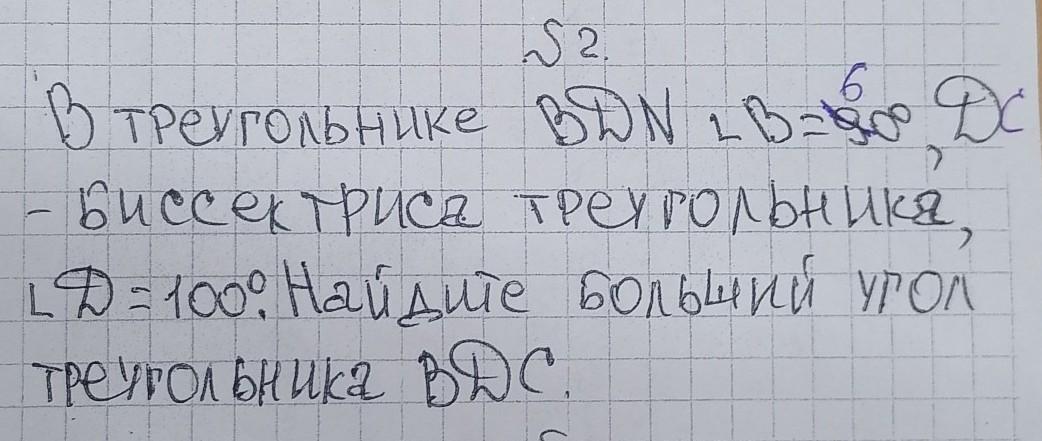 № 2.
В треугольнике BDN ∟B=60°, DC
- биссектриса треугольника,
∟D=100°. Найдите больший угол
треугольника BDC.